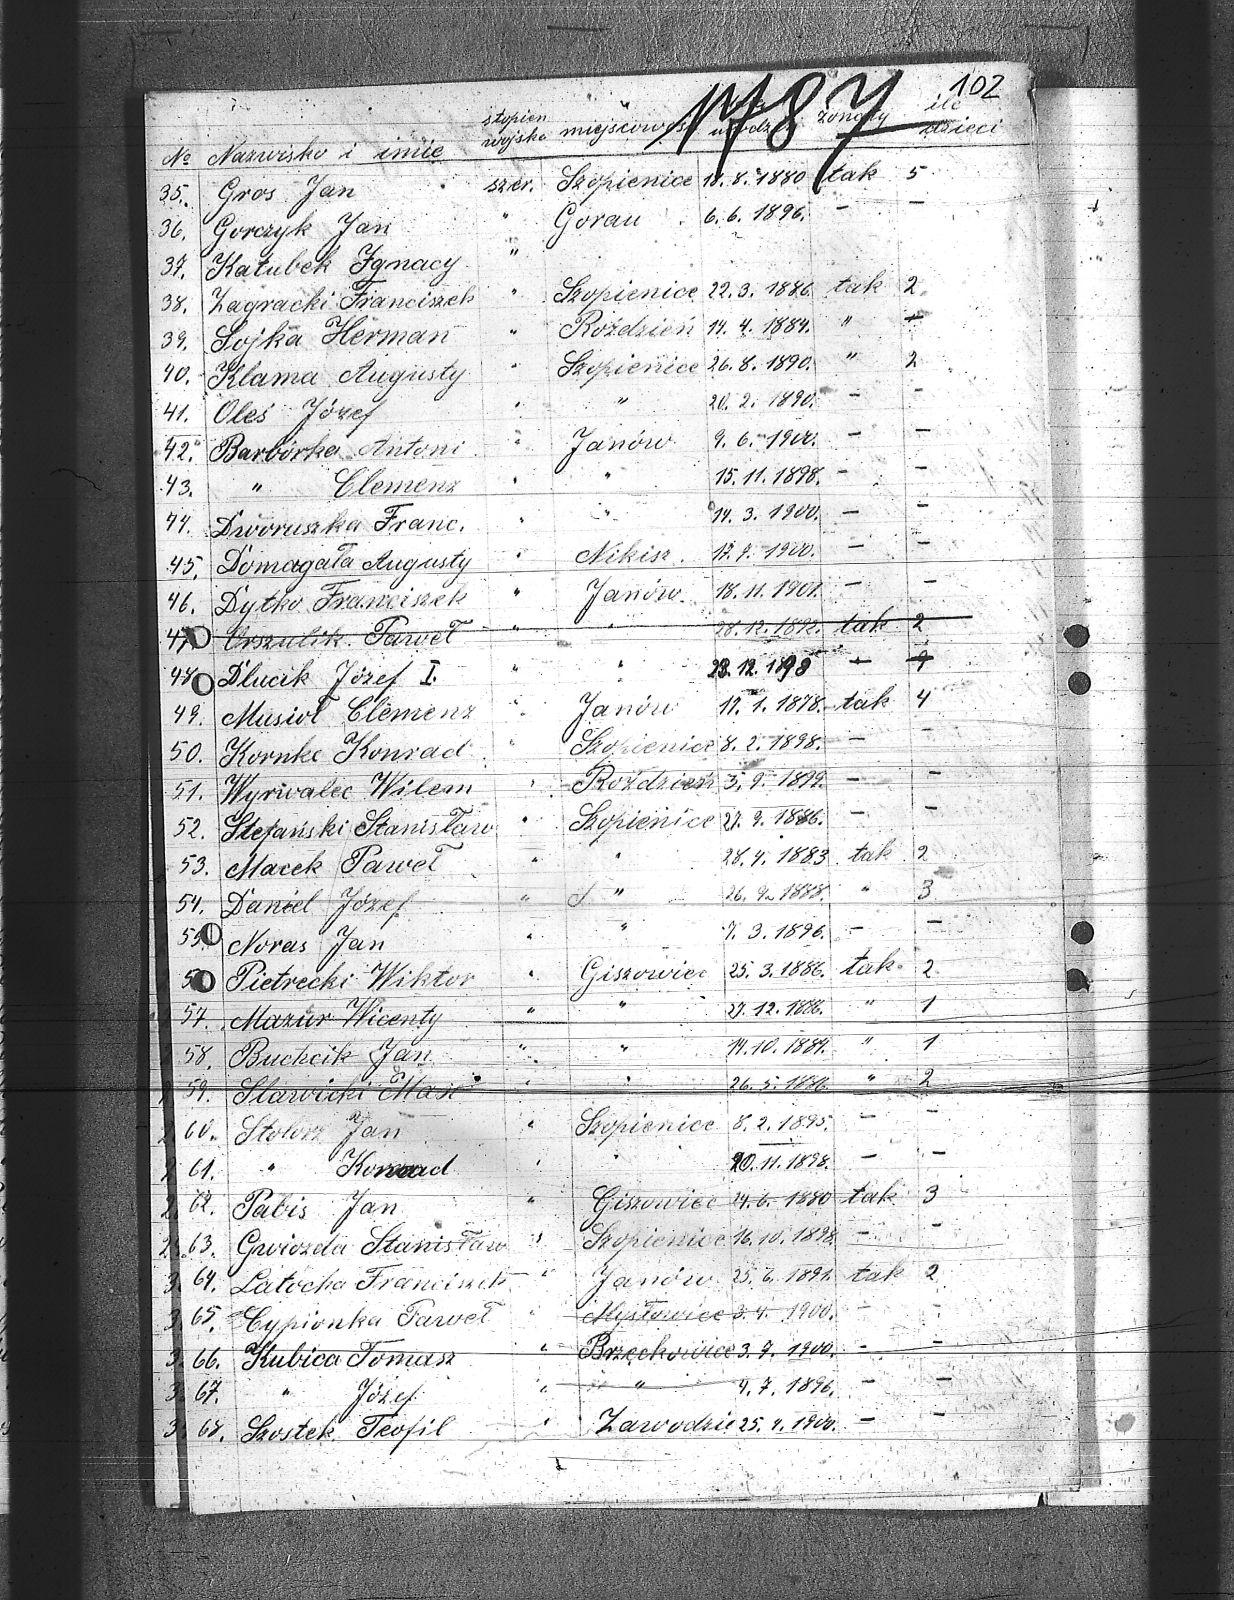 102
1787
№ Nazwisko i imię stopień wojsko miejscowość urodz. żonaty ile dzieci
35. Gros Jan szer. Szopienice 18.8.1880 tak 5
36. Gorczyk Jan " Gorau 6.6.1896. - -
37. Katubek Ignacy "
38. Zagracki Franciszek " Szopienice 22.3.1886. tak 2
39. Sojka Herman " Roździeń 14.4.1884. "
40. Klama Augusty " Szopienice 26.8.1890. " 2
41. Oleś Józef " " 20.2.1890. - -
42. Barbórka Antoni " Janów 9.6.1900. - -
43. " Clemenz " " 15.11.1898. - -
44. Dworuszka Franc. " " 14.3.1900. - -
45. Domagała Augusty " Nikisz. 1900. - -
46. Dytko Franciszek " Janów 18.11.1901. - -
47. Urszulik Paweł " " 28.12.1892. tak 2
48. Dlucik Józef I. " " 23.12.1898
49. Musioł Clemenz " Janów 17.1.1878. tak 4
50. Kornke Konrad " Szopienice 8.2.1898. - -
51. Wyrwalec Wilem " Roździeń 3.9.1899. - -
52. Stefański Stanisław " Szopienice 27.9.1886. - -
53. Macek Paweł " " 28.4.1883 tak 2
54. Daniel Józef " " 26.9.1888. " 3
55. Noras Jan " " 7.3.1896. - -
56. Pietrecki Wiktor " Giszowiec 25.3.1886. tak 2
57. Mazur Wicenty " " 27.12.1886. " 1
58. Buchcik Jan " " 14.10.1889. " 1
59. Slawicki Max " " 26.5.1886. " 2
60. Stolorz Jan " Szopienice 8.2.1895. - -
61. " Konrad " " 20.11.1898. - -
62. Pabis Jan " Giszowiec 24.6.1880 tak 3
63. Gwiozda Stanisław " Szopienice 16.10.1898. - -
64. Latocha Franciszek " Janów 25.6.1891. tak 2
65. Cypionka Paweł " Mysłowice 3.4.1900. - -
66. Kubica Tomasz " Brzęckowice 3.9.1900. - -
67. " Józef " " 4.7.1896. - -
68. Szostek Teofil " Zawodzie 25.4.1900. - -